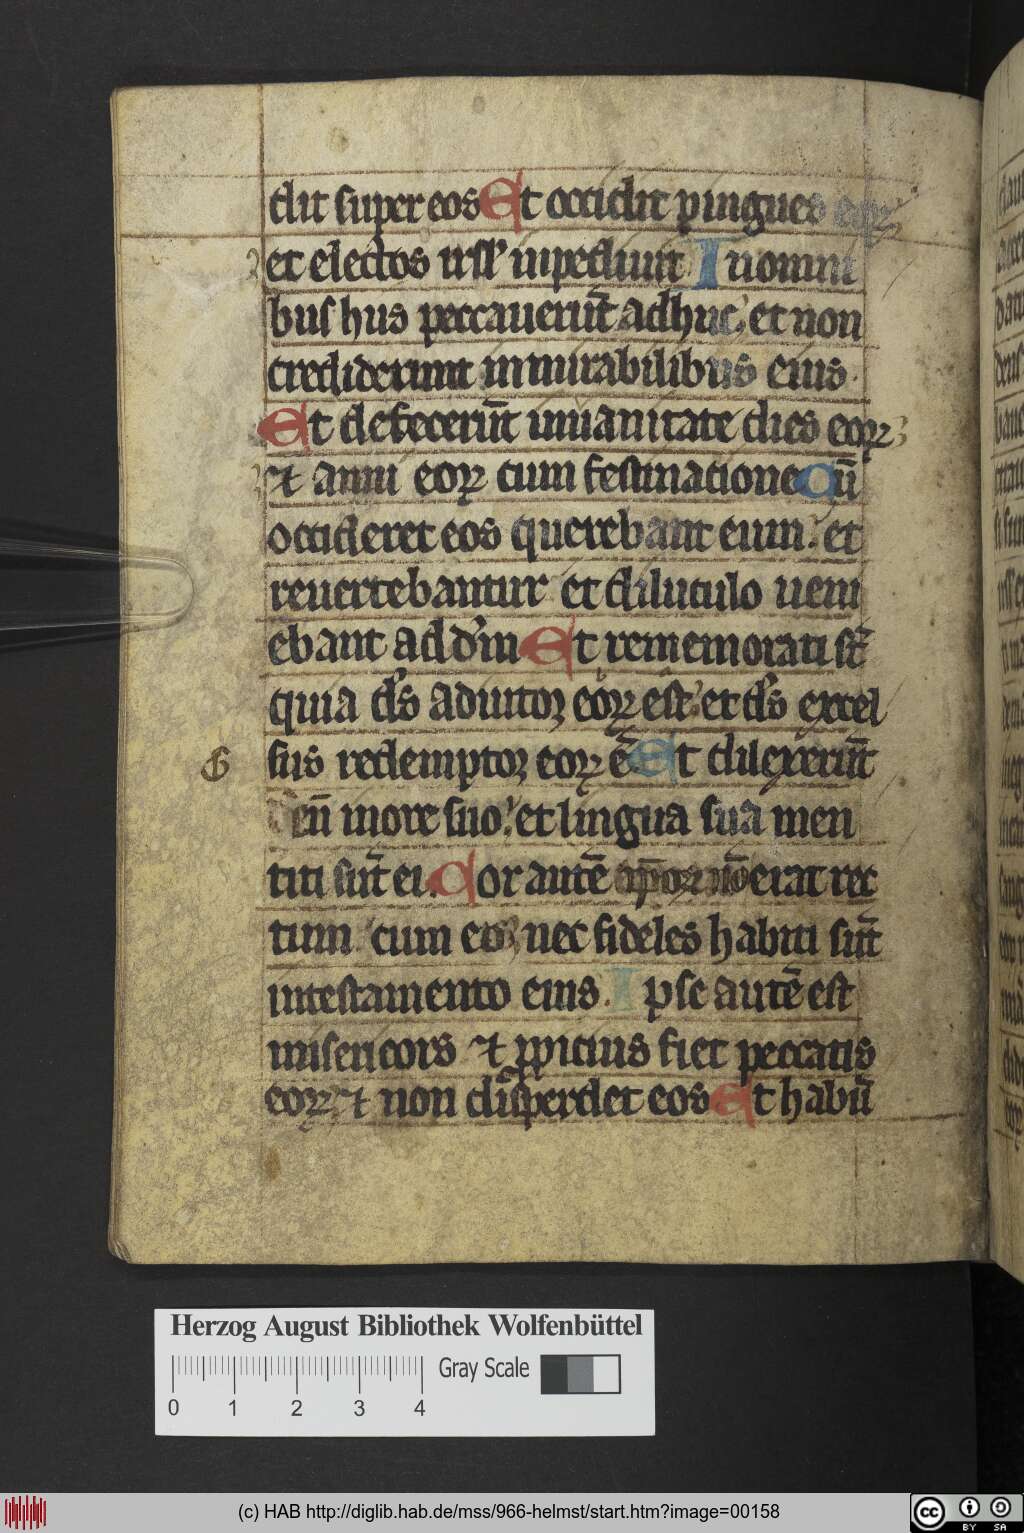 dit super eos Et occidit pingues eoꝝ
et electos isrl' inpediunt In omni
bus hiis peccauerūt adhuc et non
crediderunt in mirabilibus eius.
Et defecerūt in uanitate dies eoꝝ
⁊ anni eoꝝ cum festinatione Cū
occideret eos querebant eum. et
reuertebantur et diluculo ueni
ebant ad dm̄ Et rememorati st̄
quia ds̄ adiutoꝛ eoꝝ est et ds̄ excel
sus redemptoꝛ eoꝝ ē Et dilexerūt
eū in ore suo. et lingua sua men
titi sūt ei. Cor autē ip̄oꝝ nō erat rec
tum cum eo nec fideles habiti sūt
in testamento eius. Ipse autē est
misericors ⁊ ꝓpicius fiet peccatis
eoꝝ ⁊ non disperdet eos Et habū
Herzog August Bibliothek Wolfenbüttel
Gray Scale
0 1 2 3 4
(c) HAB http://diglib.hab.de/mss/966-helmst/start.htm?image=00158
cc BY SA